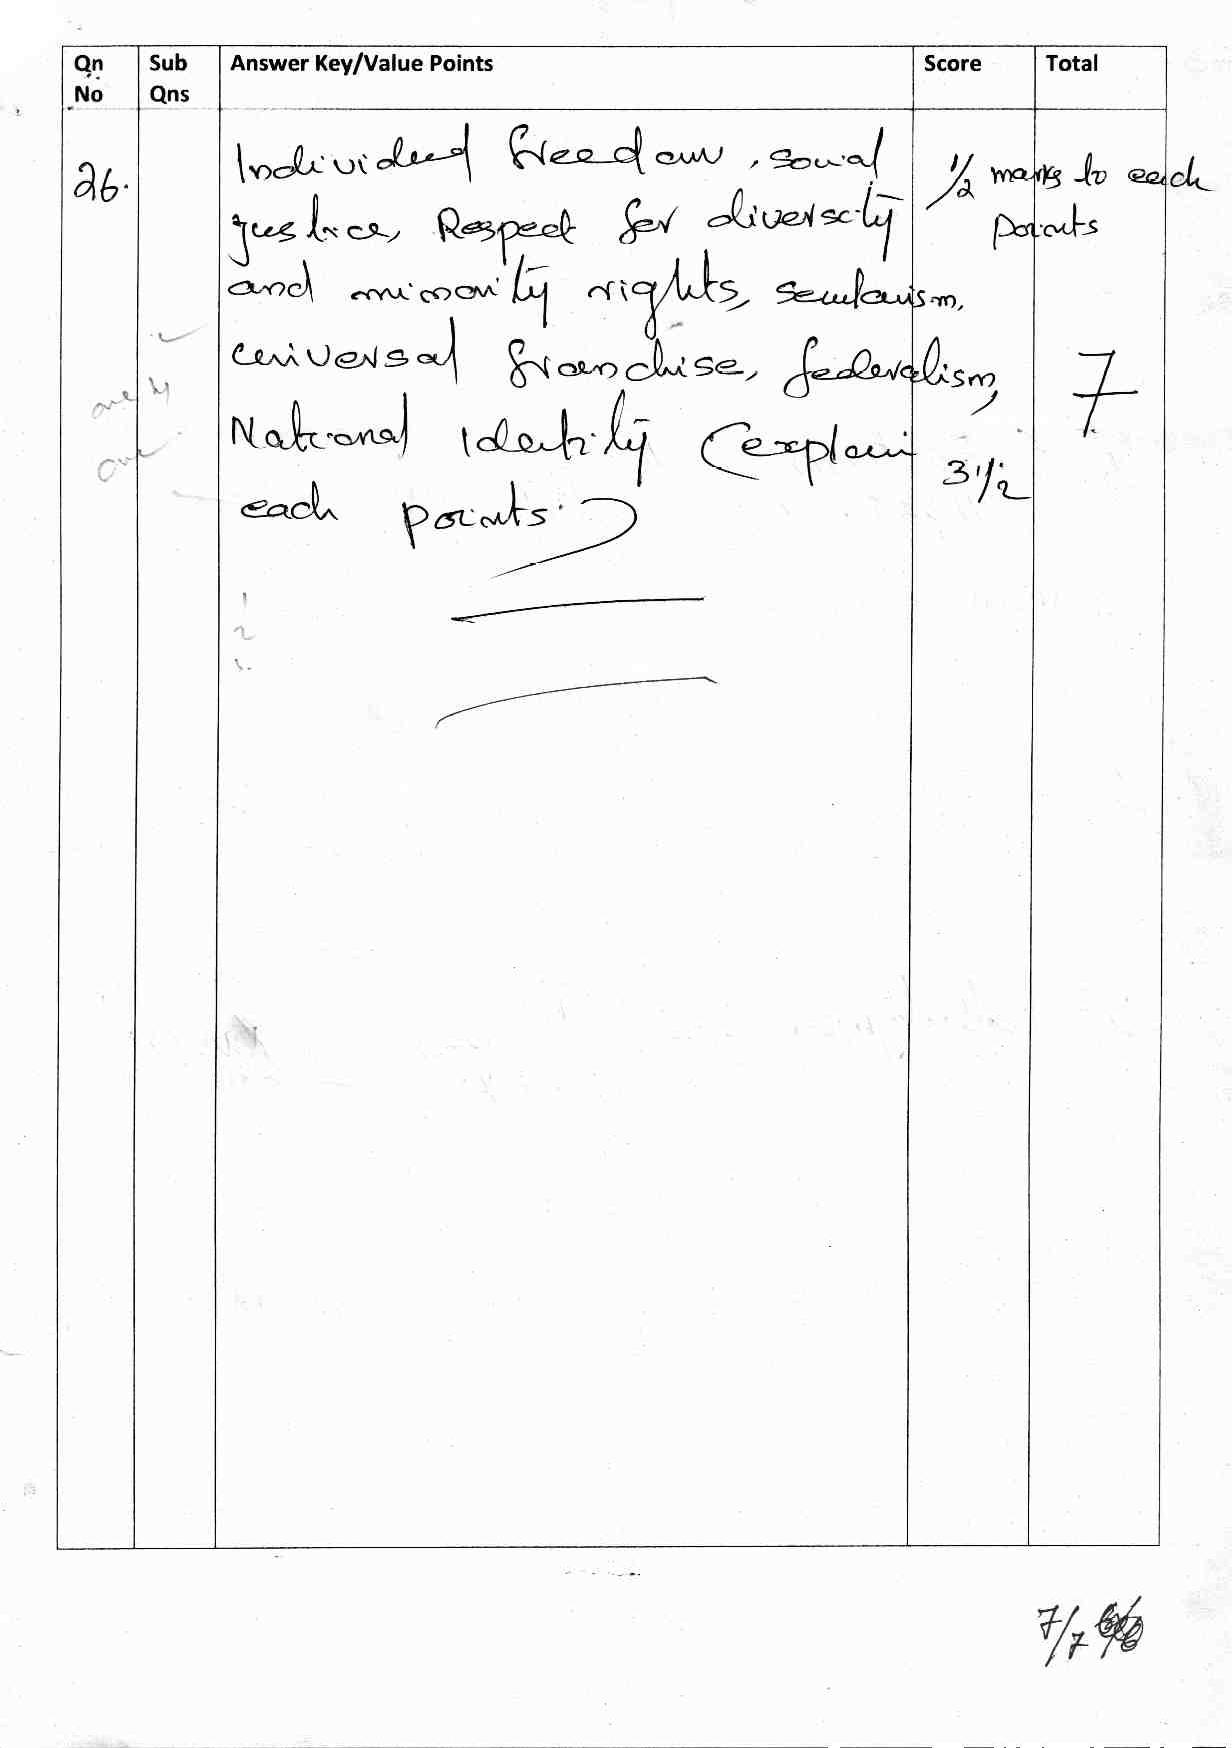 Qn No Sub Qns Answer Key/Value Points Score Total
26.
Individual freedom, social
justice, Respect for diversity
and minority rights, secularism,
universal franchise, federalism,
National Identity (explain
each points.)
1/2 marks to each
points
3 1/2
7
one by
one
1
2
7/7